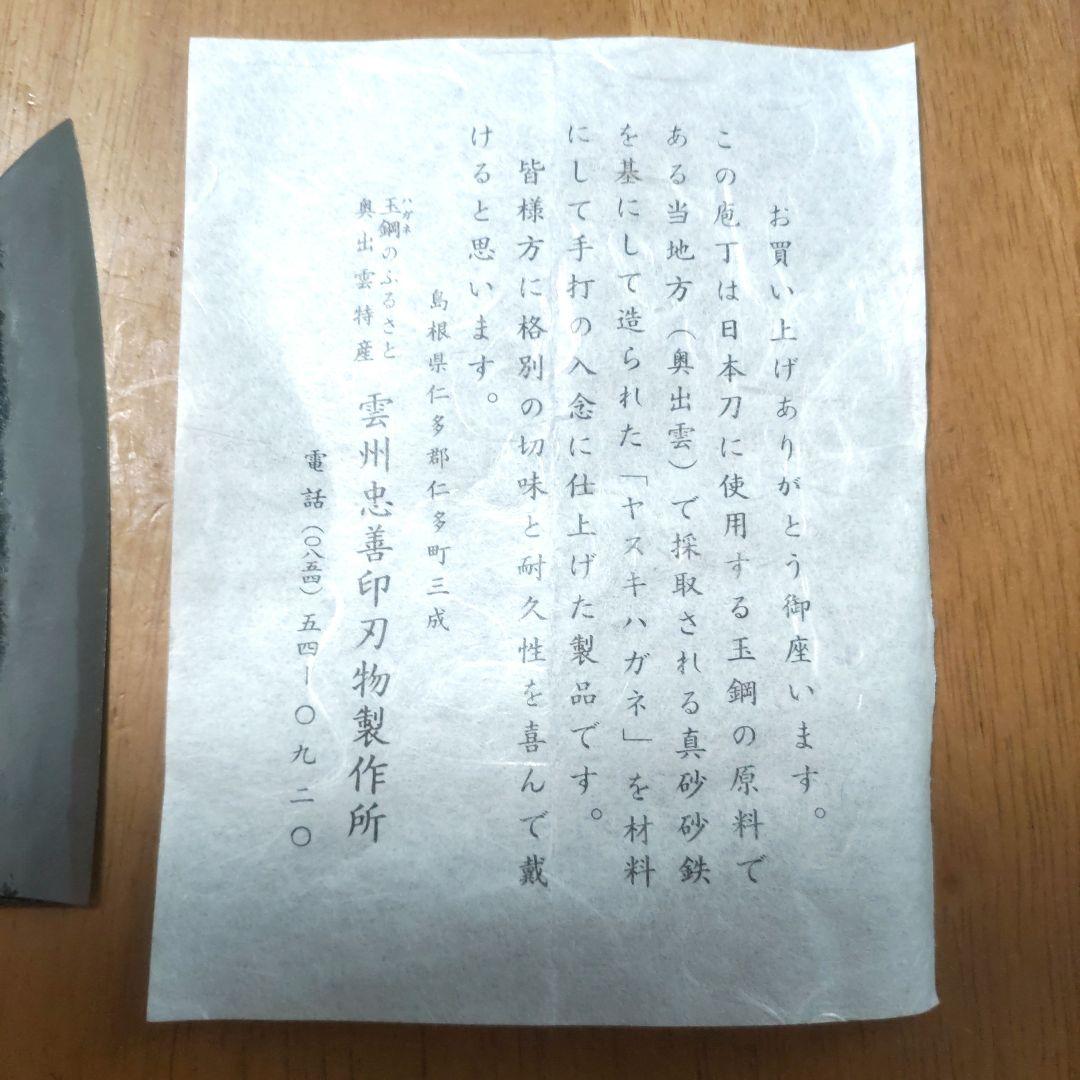 お買い上げありがとう御座います。
この庖丁は日本刀に使用する玉鋼の原料で
ある当地方（奥出雲）で採取される真砂砂鉄
を基にして造られた「ヤスキハガネ」を材料
にして手打の入念に仕上げた製品です。
皆様方に格別の切味と耐久性を喜んで戴
けると思います。
島根県仁多郡仁多町三成
ハガネ
玉鋼のふるさと
奥出雲特産
雲州忠善印刃物製作所
電話（〇八五四）五四ー〇九二〇